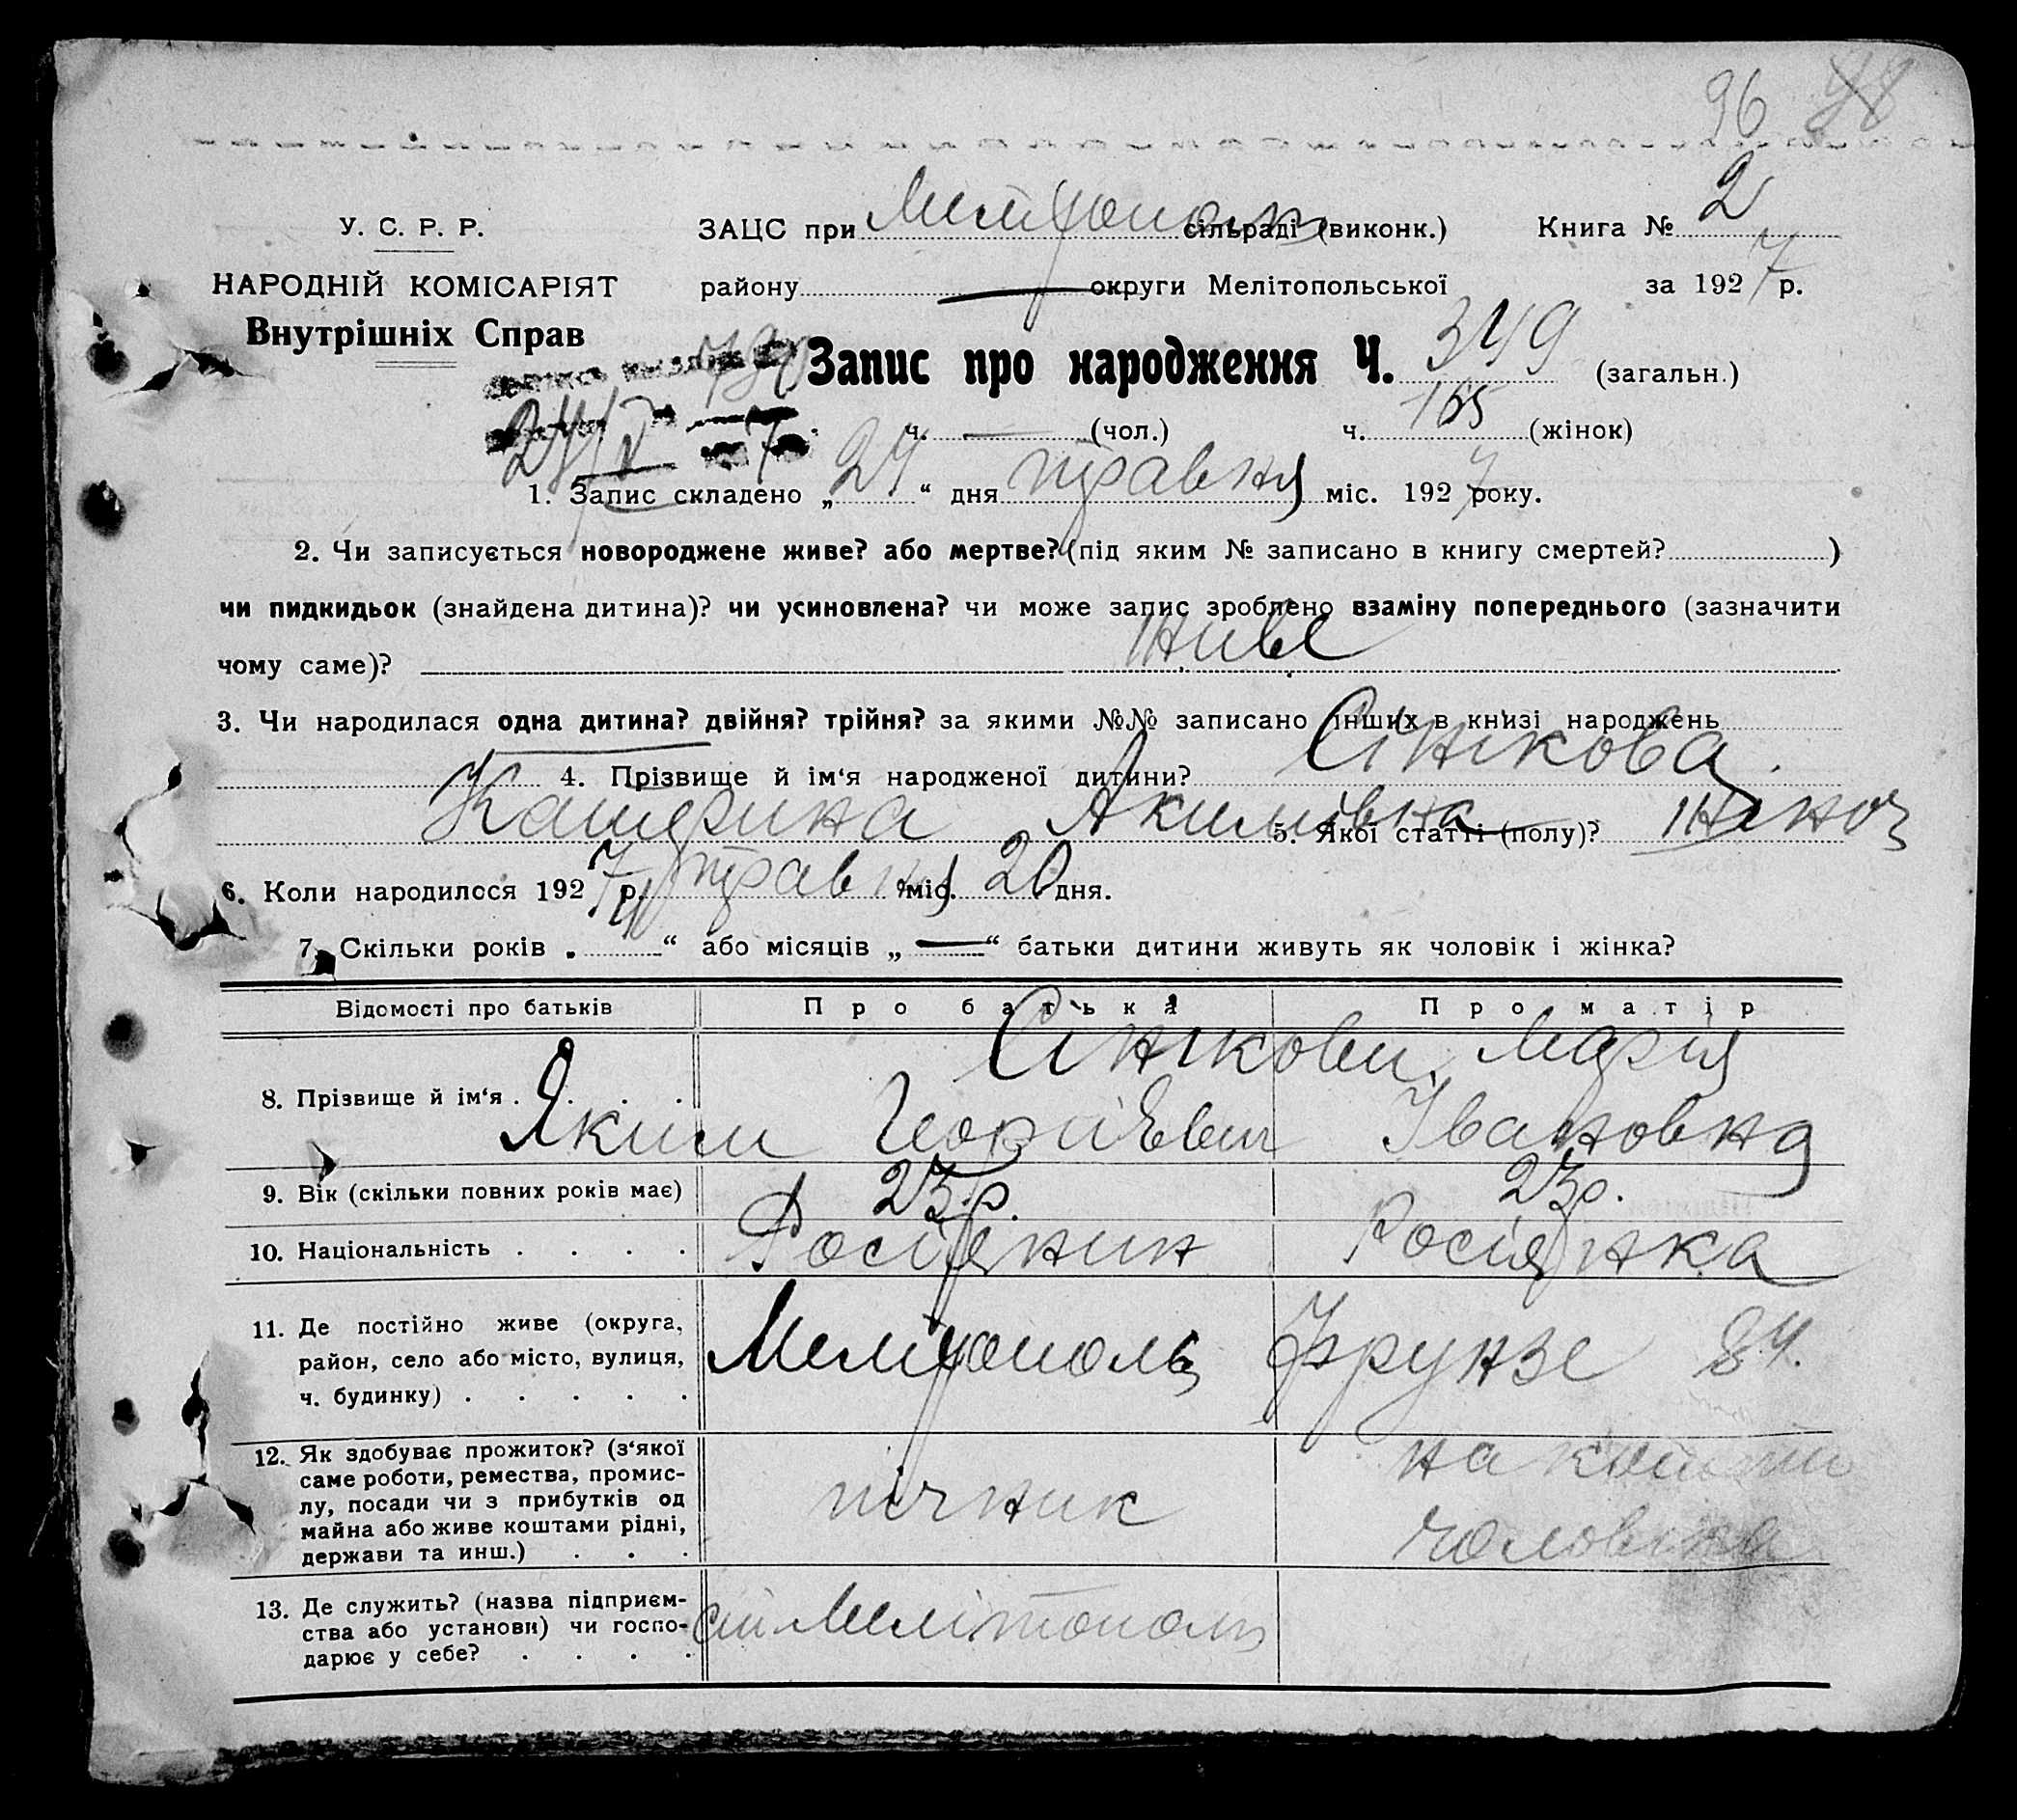 96 98
У. С. Р. Р. ЗАЦС при Мелітополь сільраді (виконк.) Книга № 2
НАРОДНІЙ КОМІСАРІЯТ району — округи Мелітопольської за 1927 р.
Внутрішніх Справ
Запис про народження Ч. 349 (загальн.)
ч. — (чол.) ч. 165 (жінок)
1. Запис складено „24“ дня травня міс. 1927 року.
2. Чи записується новороджене живе? або мертве? (під яким № записано в книгу смертей? )
чи пидкидьок (знайдена дитина)? чи усиновлена? чи може запис зроблено взаміну попереднього (зазначити
чому саме)? живе
3. Чи народилася одна дитина? двійня? трійня? за якими №№ записано інших в книзі народжень
4. Прізвище й ім‘я народженої дитини? Сінкова
Катерина Акимівна 5. Якої статті (полу)? жіноч
6. Коли народилося 1927 р. травня міс. 20 дня.
7. Скільки років „4“ або місяців „—“ батьки дитини живуть як чоловік і жінка?
Відомості про батьків Про батька Про матір
Сінкови Марія
8. Прізвище й ім‘я . . . . Яким Георгіевич Івановна
9. Вік (скільки повних років має) 23 р. 23 р.
10. Національність . . . . Росіянин Росіянка
11. Де постійно живе (округа,
район, село або місто, вулиця, Мелітополь Фрунзе 84.
ч. будинку) . . . . .
12. Як здобуває прожиток? (з‘якої на кошти
саме роботи, ремества, промис-
лу, посади чи з прибутків од пічник
майна або живе коштами рідні, чоловіка
держави та инш.) . . .
13. Де служить? (назва підприєм-
ства або установи) чи госпо- Мелітополь
дарює у себе? . . . .